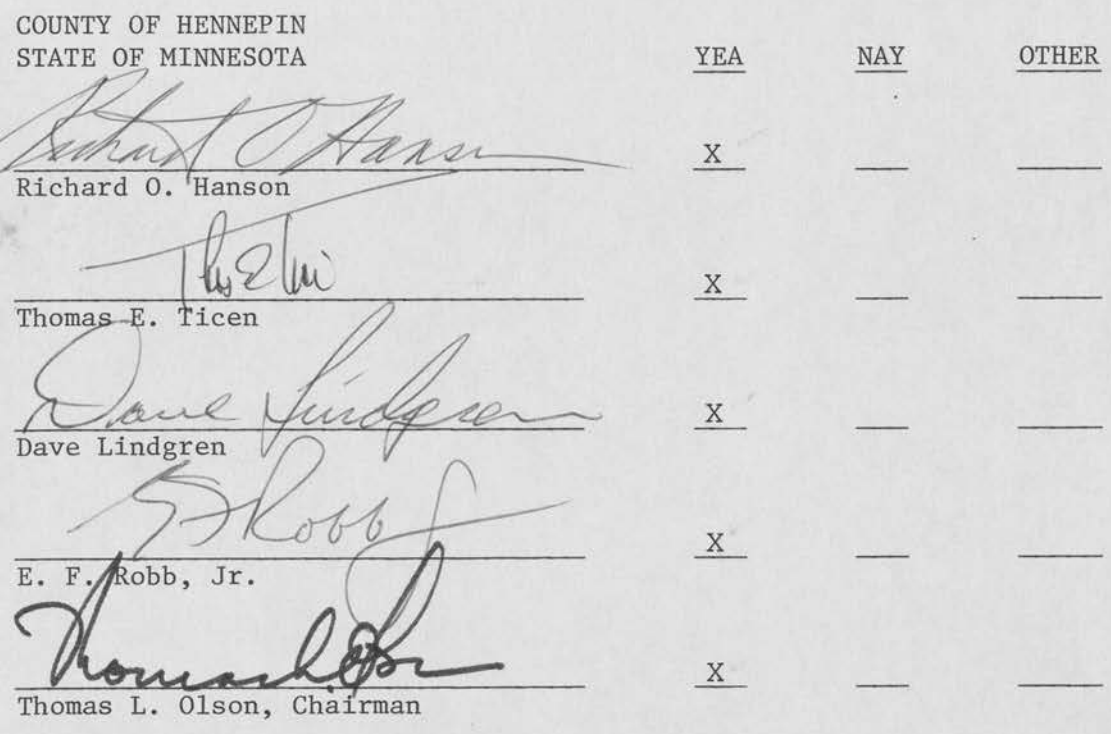 COUNTY OF HENNEPIN
STATE OF MINNESOTA YEA NAY OTHER
Richard O Hanson X
Richard O. Hanson
Thos E Tic X
Thomas E. Ticen
Dave Lindgren X
Dave Lindgren
EF Robb Jr X
E. F. Robb, Jr.
Thomas L. Olson X
Thomas L. Olson, Chairman